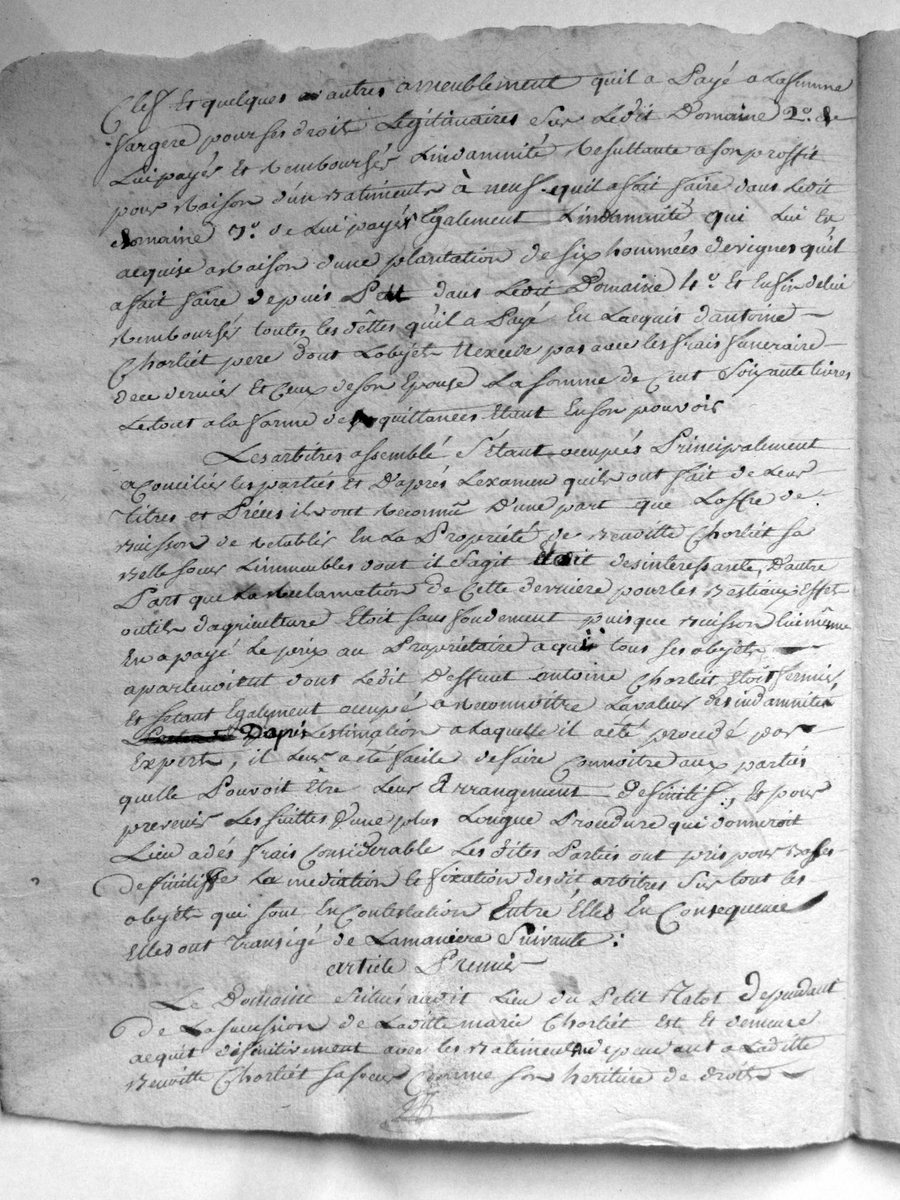 Clef Et quelques autres ameublement quil a Payé a La femme
fargere pour ses droits Légitimaires Sur Ledit Domaine 2.° de
Lui payés Et Remboursés Lindamnité Resultante a son proffit
pour Raison d'un Batiments à neuf quil a fait faire dans Ledit
domaine 3.° de Lui payés Egalement Lindemnité qui Lui En
acquise a Raison d'une plantation de six hommées de vignes quil
a fait faire depuis dans Ledit Domaine 4.° Et Enfin de lui
Remboursés toutes les dêttes quil a Payé En Lacquit d'antoine
Chorliét pere dont Lobjet N'excede pas avec les frais funeraire
de ce dernier Et Ceux de son Epouse La somme de Cent Soixante livres
Le tout a la forme des quittances Etant En son pouvoir
Les arbitres assemblé S'étant occupés Principalement
a Concilier les parties Et D'aprés Lexamen quils ont fait de Leur
titres et Piéces ils ont Reconnu D'une part que Loffre de
Buisson de Retablir En La Propriété de Benoitte Chorliét sa
Belle soeur Limmeubles dont il Sagit étoit desinteressante, D'autre
Part que La Reclamation de Cette derniere pour les Bestiaux Effet
outils dagriculture Etoit sans fondement puisque Buisson lui même
En a payé Le prix au Propriétaire a qui tous ses objets
apartenoient dont Ledit Deffunt antoine Chorliét Etoit fermier
Et s'etant Egalement occupé a Reconnoitre La valeur des indamnités
D'apris Lestimation a Laquelle il a été procedé par
Expert, il Leur a été facile de faire Connoitre aux parties
quelle Pouvoit Être Leur Arrangement definitif, Et pour
prevenir Les suittes d'une plus Longue Procedure qui donneroit
Lieu a dés frais Considerable Les dites Parties ont pris pour Basse
definitiffe La mediation Et fixation desdit arbitres Sur tout les
objéts qui sont En Contestation Entré Elles En Consequence
Elles ont Transigé de La maniere Suivante :
article Premier
Le Domaine Situés audit Lieu du Petit Dependant
de La sucession de Laditte marie Chorliét Est Et demeure
acquit définitivement avec les Batiment dependant a Laditte
Benoitte Chorliét sa soeur Comme son heritiere de droit